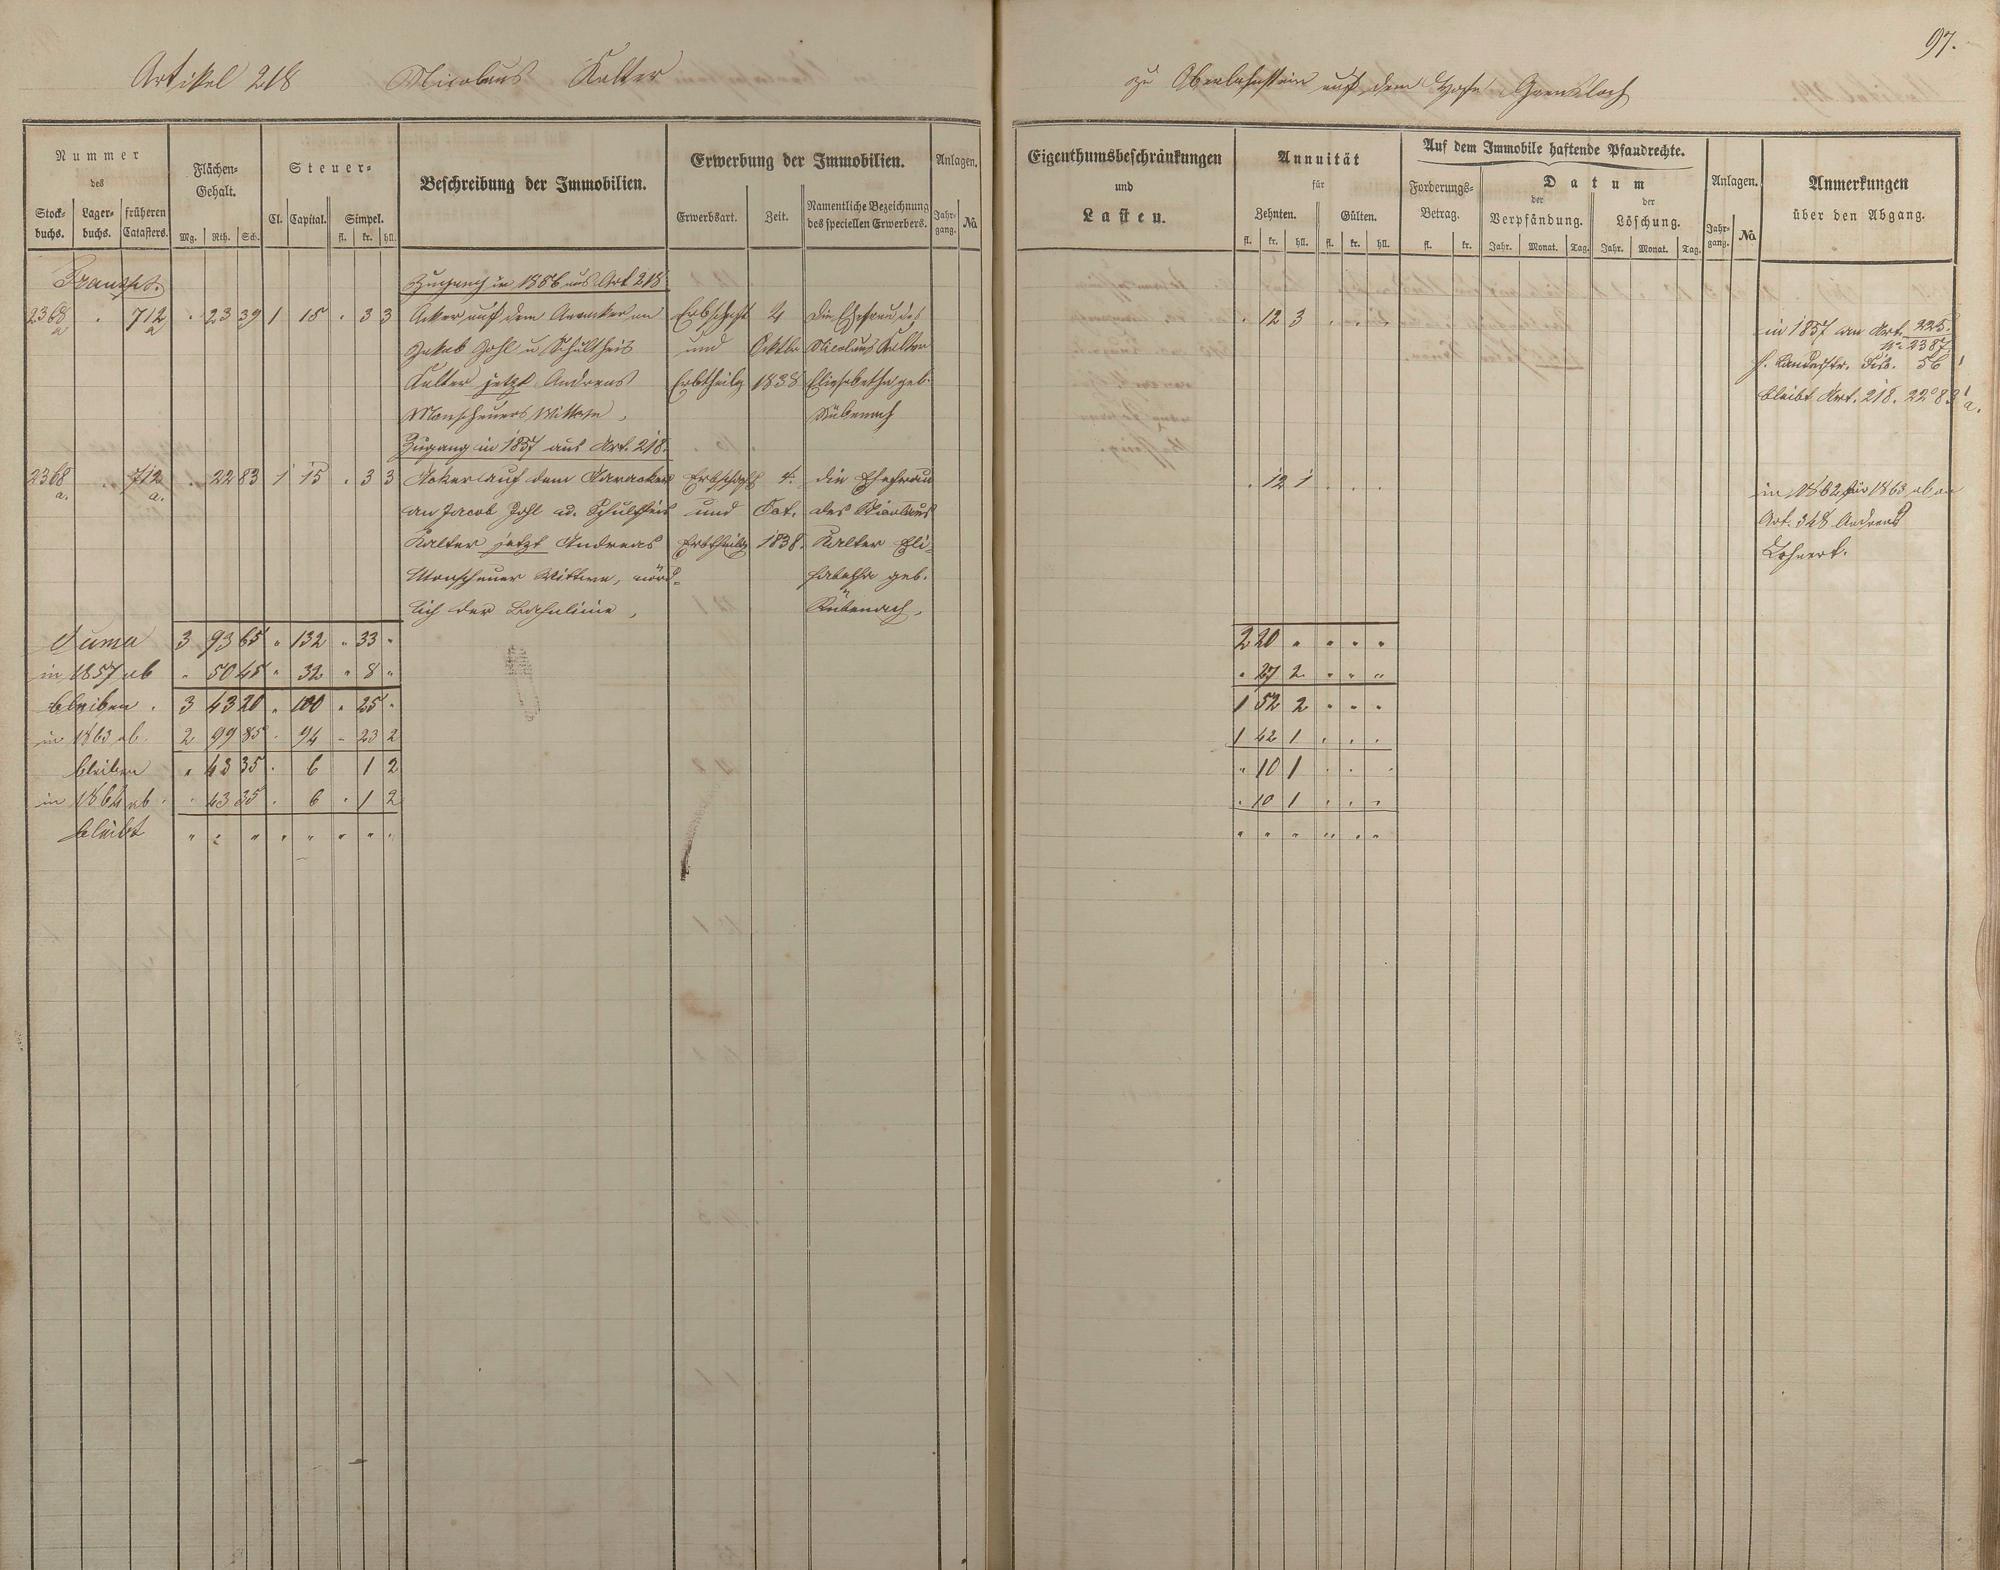 97.
Artikel 218 Nicolaus Kalter zu Oberlahnstein auf dem Hofe
Nummer des
Stock-buchs. Lager-buchs. früheren Catasters.
Flächen-Gehalt.
Mg. Rth. Sch.
Steuer-
Cl. Capital. Simpel.
fl. kr. hll.
Beschreibung der Immobilien.
Erwerbung der Immobilien.
Erwerbsart. Zeit. Namentliche Bezeichnung des speciellen Erwerbers.
Anlagen.
Jahr-gang. No.
Eigenthumsbeschränkungen
und
Lasten.
Annuität
für
Zehnten. Gülten.
fl. kr. hll. fl. kr. hll.
Auf dem Immobile haftende Pfandrechte.
Forderungs-Betrag.
fl. kr.
Datum
der Verpfändung. der Löschung.
Jahr. Monat. Tag. Jahr. Monat. Tag.
Anlagen.
Jahr-gang. No.
Anmerkungen
über den Abgang.
Transpt.
Zugang in 1856 aus Art 218
2368 a " 712 a " 23 39 1 15 " 3 3 Acker auf dem an Erbschaft 4 Die Ehefrau des " 12 3 " " "
Jakob Zohl u Schultheis und Oktbr Nicolaus Kalter
Kalter jetzt Andreas Erbtheilg 1838 Elisabetha geb.
Monscheuers Wittwe, Rübenach
in 1857 an Art. 225.
No. 2387
f. Landesstr. Dis. 56
bleibt Art. 218. 22° 83' a.
Zugang in 1857 aus Art. 218.
2368 a. " 712 a. " 22 83 1 15 " 3 3 Acker auf dem Erbschaft 4. die Ehefrau " 12 1 " " "
an Jacob Zohl u. Schultheis und Oct. des Nicolaus
Kalter jetzt Andreas Erbtheilg 1838. Kalter Eli-
Monscheuer Wittwe, nörd- sabetha geb.
lich der Bahnlinie, Rübenach,
in 1862 für 1863 ab an
Art. 348 Andreas
Lehnert.
Suma 3 93 65 " 132 " 33 " 2 20 " " " "
in 1857 ab " 50 45 " 32 " 8 " " 27 2 " " "
bleiben . 3 43 20 " 100 " 25 " 1 52 2 " " "
in 1863 ab. 2 99 85 " 94 " 23 2 1 42 1 " " "
bleiben " 43 35 " 6 1 2 " 10 1 " " "
in 1864 ab. " 43 35 " 6 " 1 2 " 10 1 " " "
bleibt " " " " " " " " " " " " " "